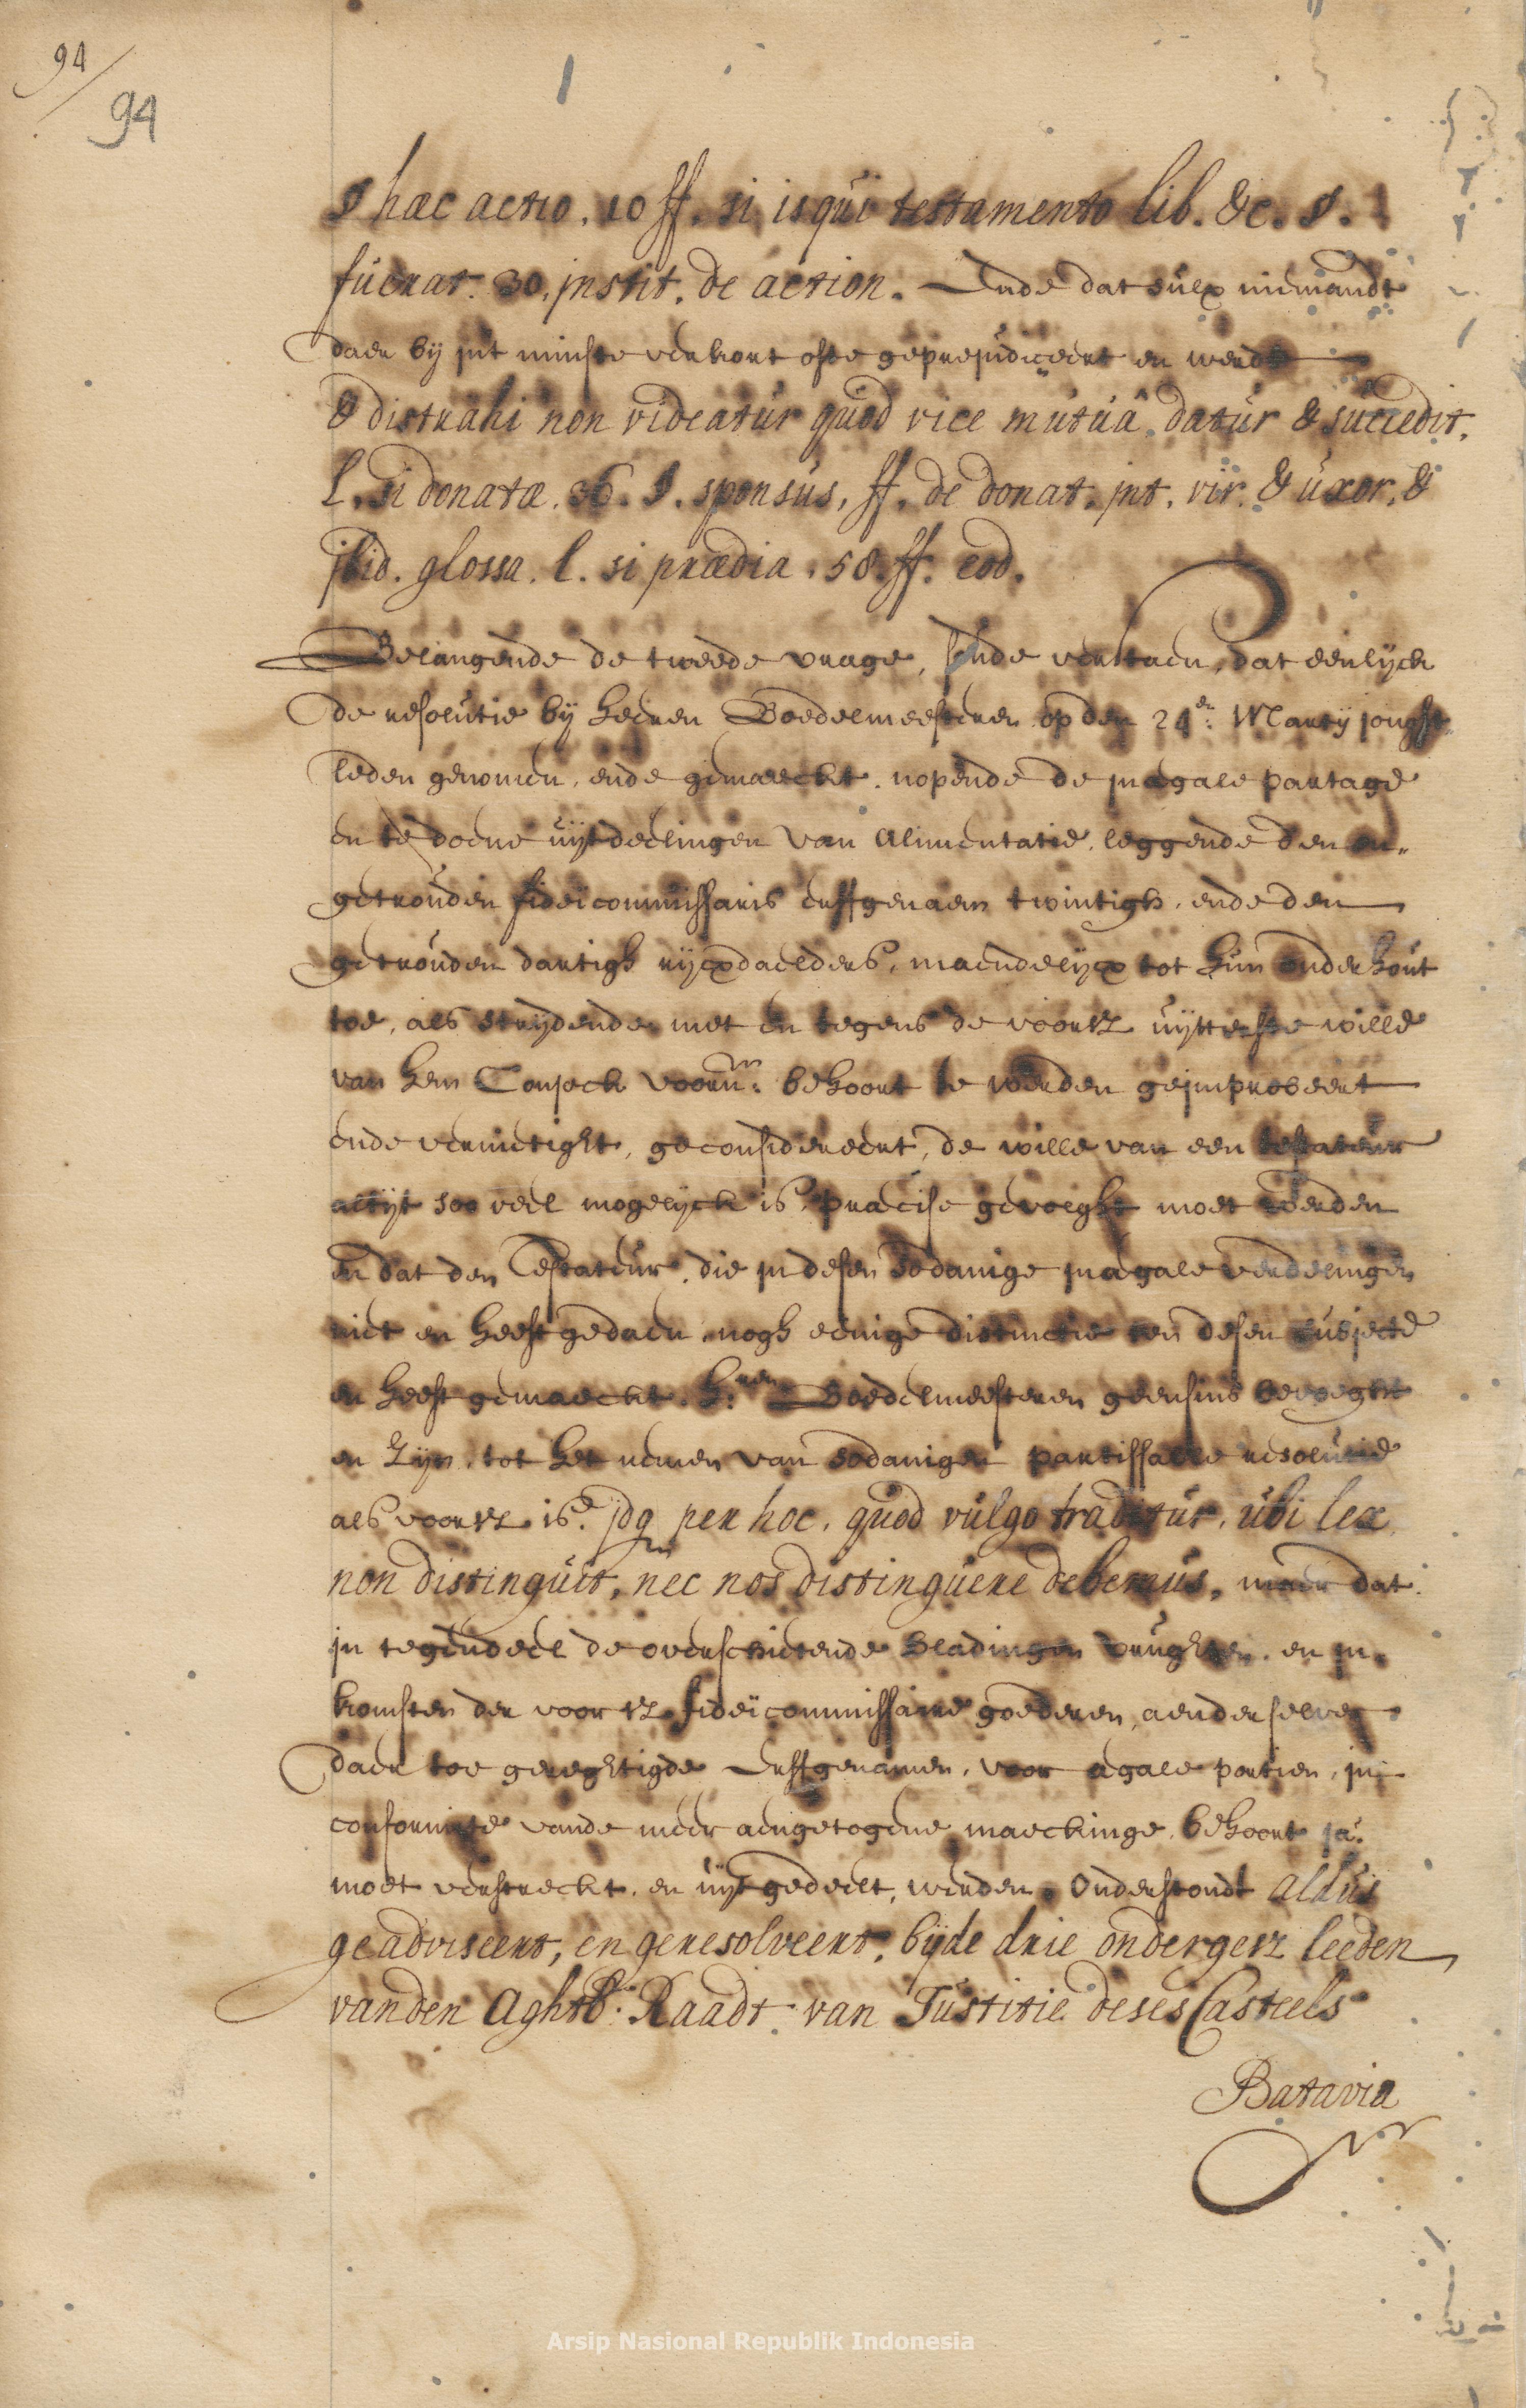 94/
94
§ hæc actio. 10 ff. si is qui testamento lib. &c. §.
fuerat. 30. jnstit. de action. Ende dat sulx niemandt
daer bij jnt minste verkort ofte geprejudiceert en werdt
& distrahi non videatur quod vice mutuâ datur & succedit.
l. si donatæ. 36. §. sponsus, ff. de donat. jnt. vir. & uxor. &
jbid. glossa. l. si prædia. 58. ff. eod.
Belangende de tweede vrage, ende verstaen, dat eenlijck
de resolutie bij heeren Boedelmeesteren op den 24en: Martij jongst
leden genomen, ende gemaeckt. nopende de jnægale partage
en te doene uijtdeelingen van alimentatie, leggende den on„
getrouden fideicommissaris erffgenaem twintigh, ende den
getrouden dartigh rijcxdaelders, maendelijcx tot hun onderhout
toe, als strijdende met en tegens de voorsz uijtterste wille
van hem Conjock voornm: behoort te werden geimprobeert
ende vernietight, geconsidereert, de wille van een testateur
altijt soo veel mogelijck is, præcise gevolght moet werden
en dat den Testateur, die jn desen sodanige jnægale verdelingen
niet en heeft gedaen, nogh eenige distinctie ten desen subjecte
en heeft gemaeckt. H:ren Boedelmeesteren geensins bevoeght
en zijn, tot het nemen van sodanigen partissalle resolutie
als voorsz is. jdq per hoc, quod vulgo traditur, ubi lex
non distinguit, nec nos distinguere debemus, maer dat
jn tegendeel de overschietende bladingen vrughten, en jn„
komsten der voorsz fideicommissaire goederen, aen derselver
daer toe gereghtigde Erffgenamen, voor ægale portien, jn
conformité vande meer aengetogene maeckinge, behoort ja
moet verstreckt, en uijtgedeelt, werden. Onderstondt aldus
geadviseert, en geresolveert, bijde drie ondergesz leeden
vanden Aghtb: Raadt van Justitie deses Casteels
Batavia
Arsip Nasional Republik Indonesia